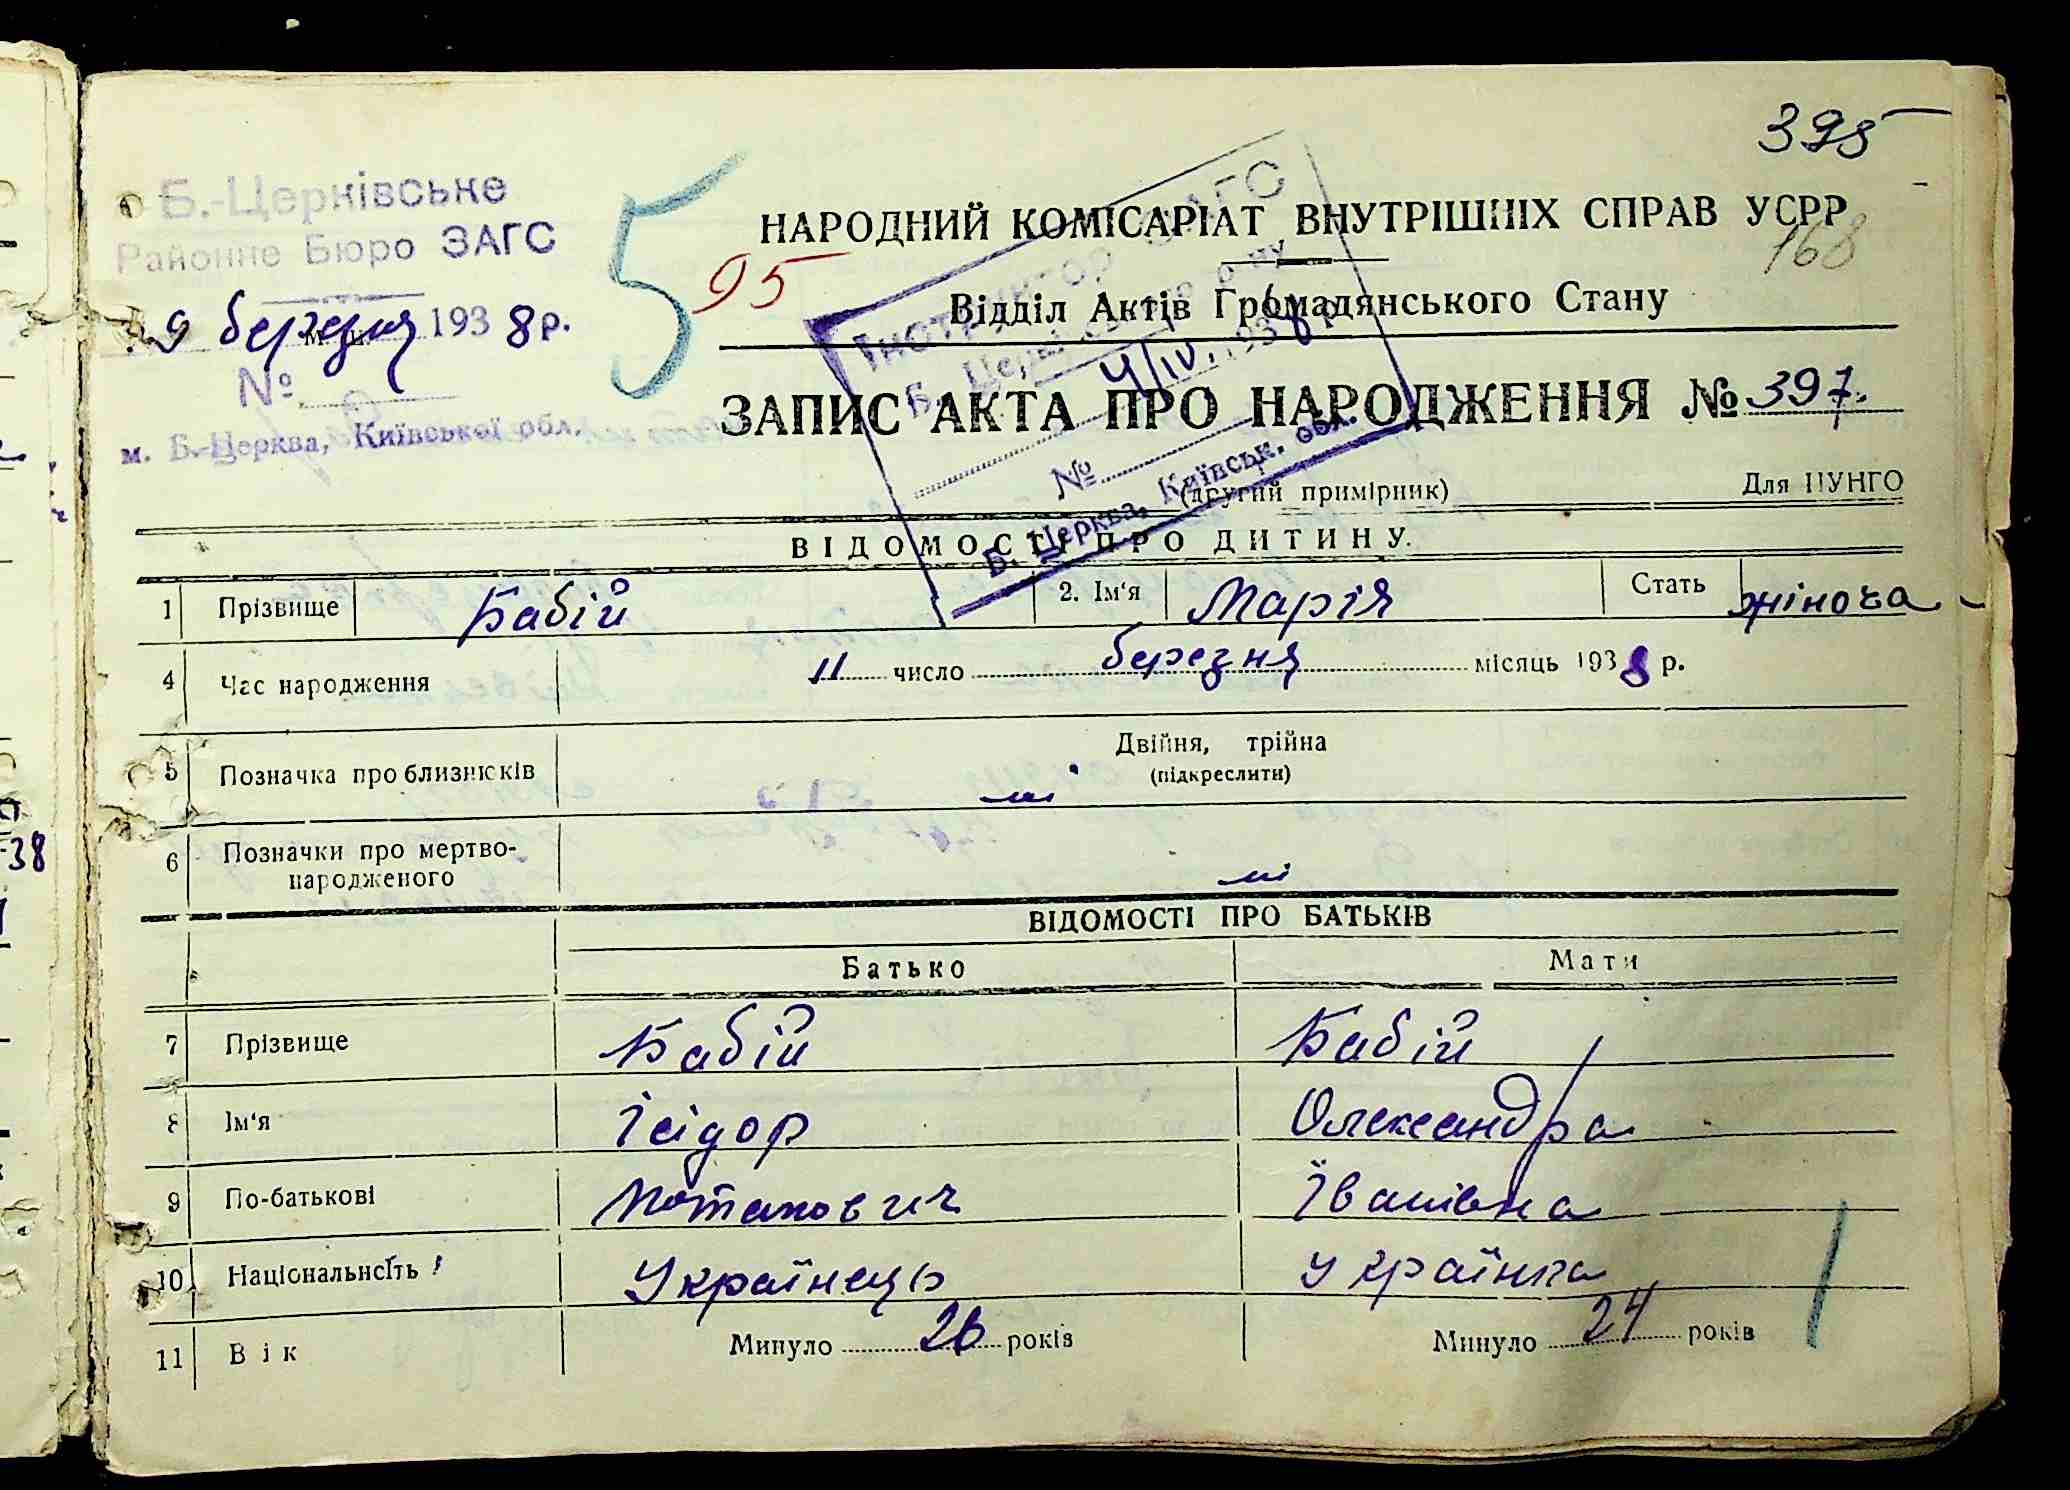 395
Б.-Церківське
Районне Бюро ЗАГС
9 березня 1938 р.
№
м. Б.-Церква, Київської обл.
5
95
НАРОДНИЙ КОМІСАРІАТ ВНУТРІШНІХ СПРАВ УСРР
168
Відділ Актів Громадянського Стану
Інструктор ЗАГС
4/IV 1938 р.
№
Б. Церква, Київськ. обл.
ЗАПИС АКТА ПРО НАРОДЖЕННЯ № 397.
(другий примірник)
Для ЦУНГО
ВІДОМОСТІ ПРО ДИТИНУ.
1 Прізвище Бабій 2. Ім'я Марія Стать жіноча
4 Час народження 11 число березня місяць 1938 р.
5 Позначка про близнюків Двійня, трійна
(підкреслити)
ні
6 Позначки про мертво-
народженого ні
ВІДОМОСТІ ПРО БАТЬКІВ
Батько Мати
7 Прізвище Бабій Бабій
8 Ім'я Ісідор Олександра
9 По-батькові Потапович Іванівна
10 Національність Українець Українка
11 Вік Минуло 26 років Минуло 24 років
38